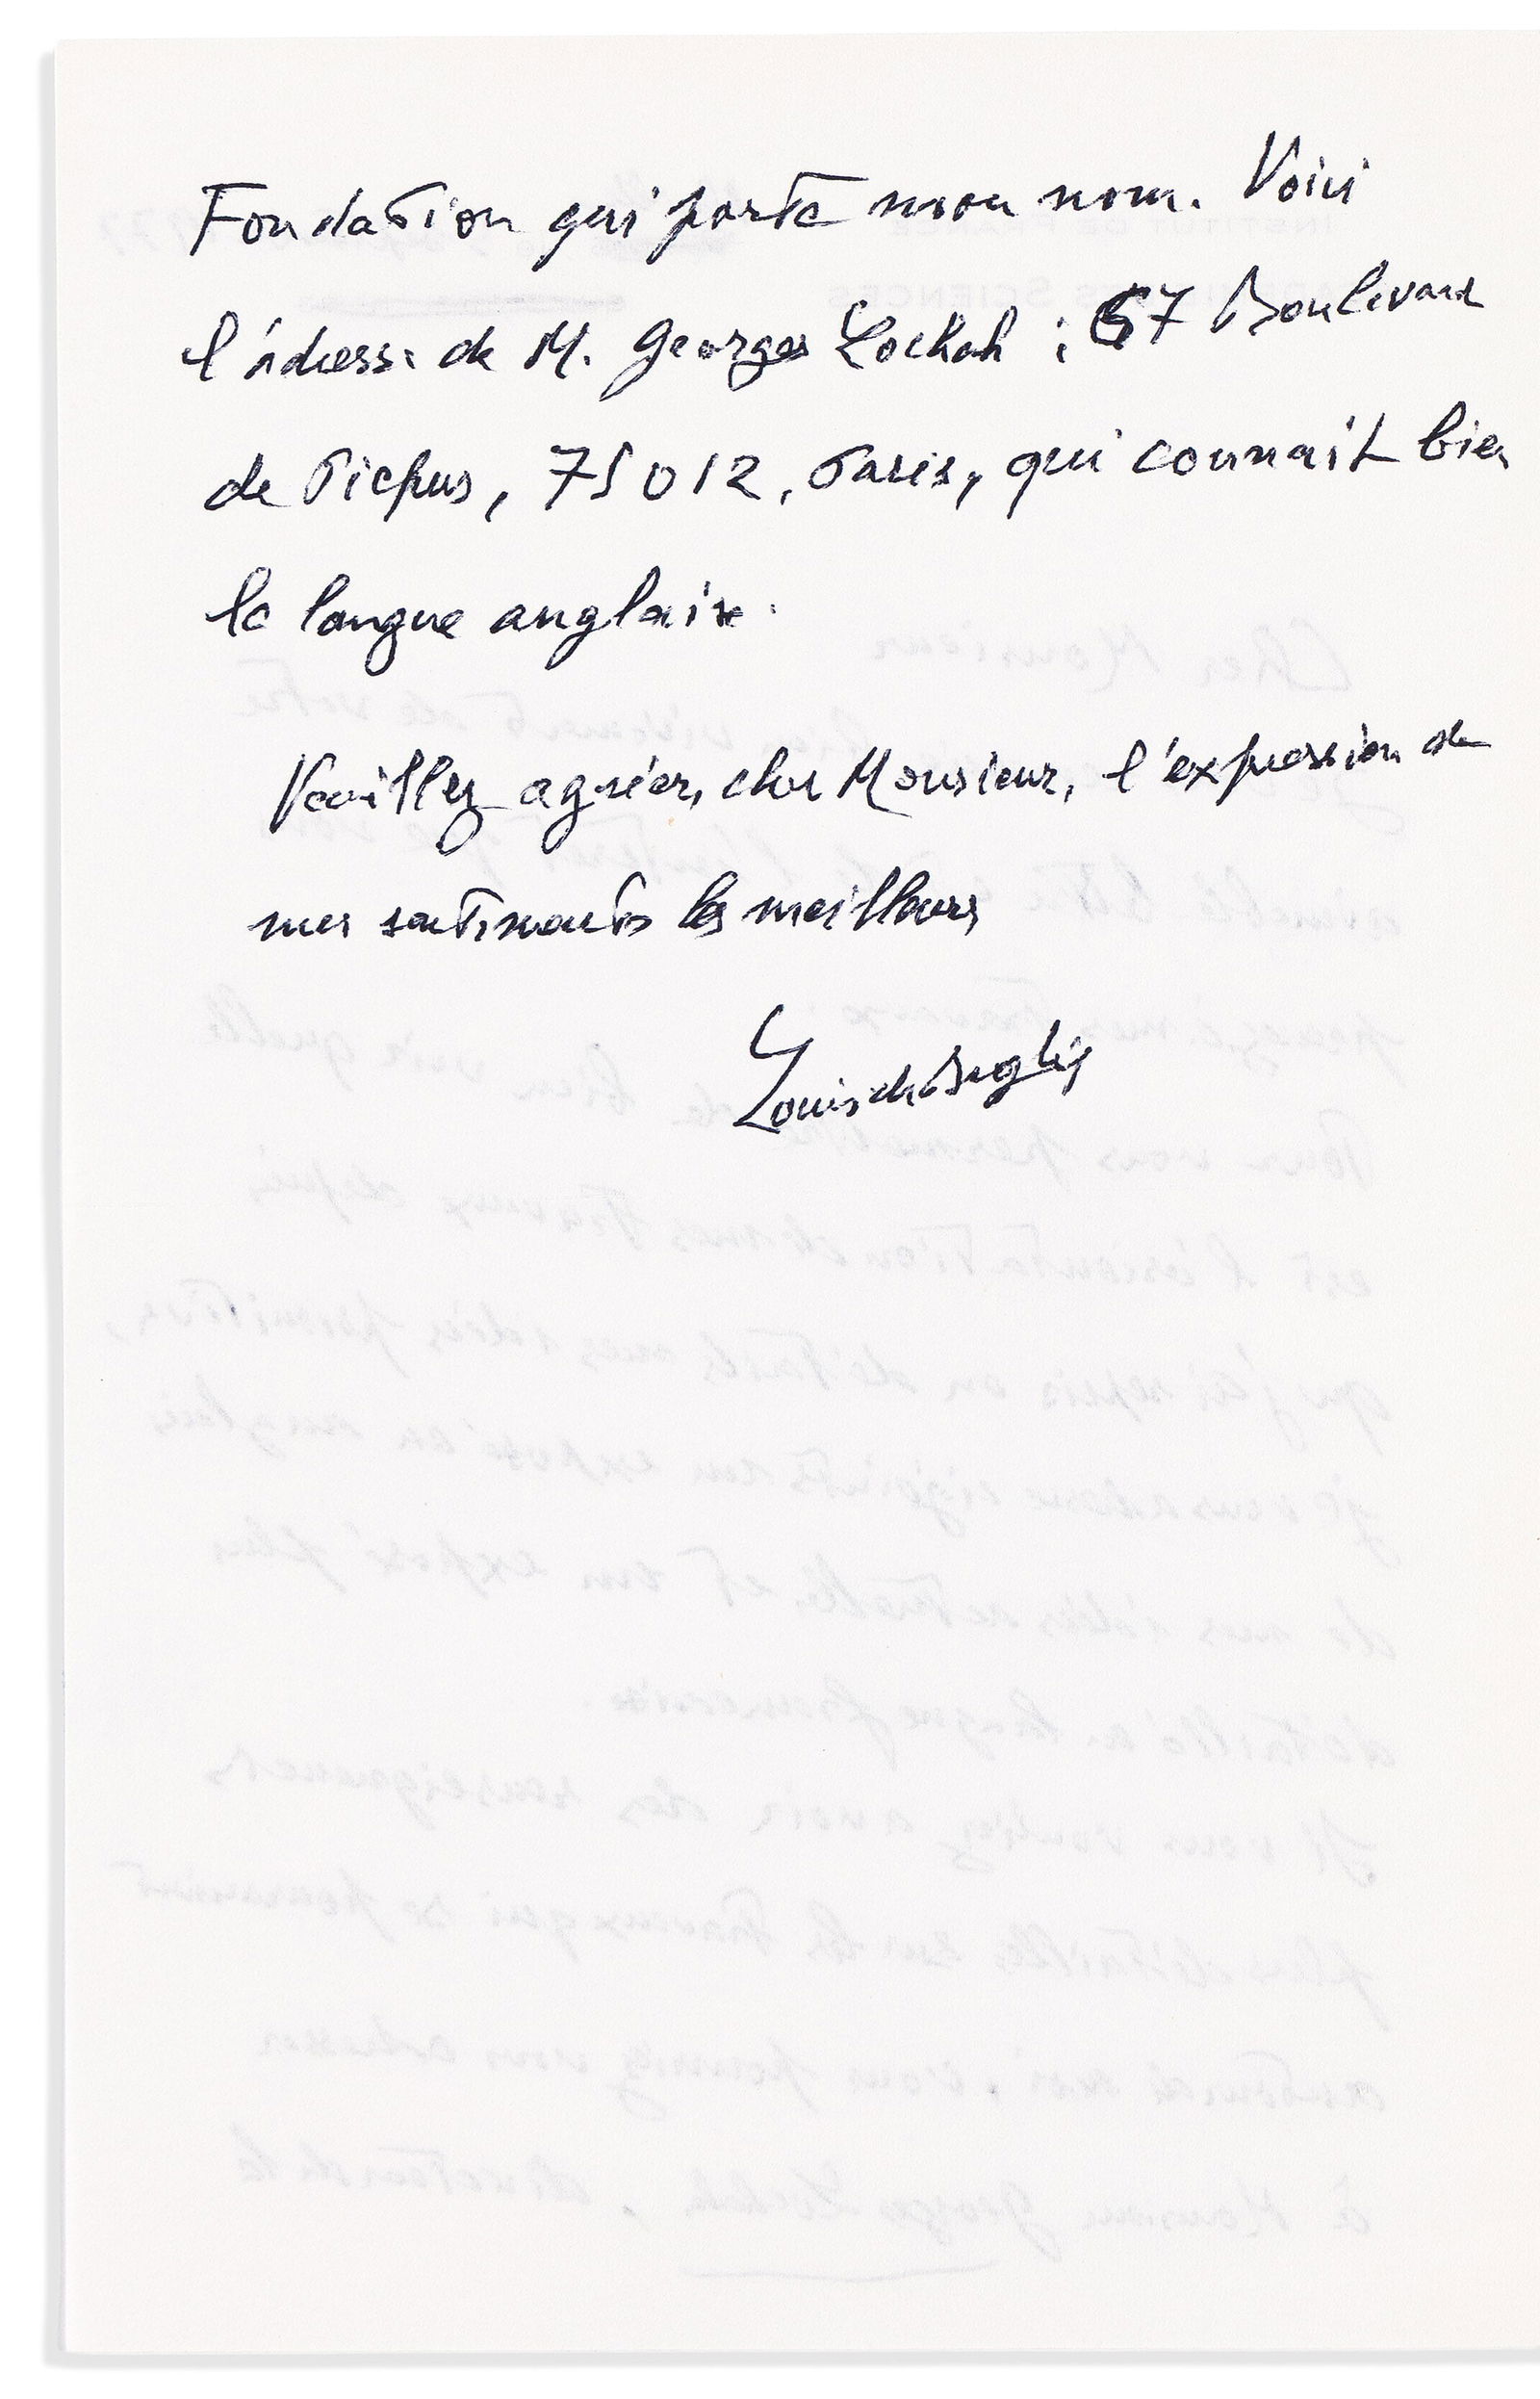 Fondation qui porte mon nom. Voici
l'adresse de M. Georges Lochak : 67 Boulevard
de Picpus, 75012, Paris, qui connait bien
la langue anglaise.
Veuillez agréer, cher Monsieur, l'expression de
mes sentiments les meilleurs
Louis de Broglie